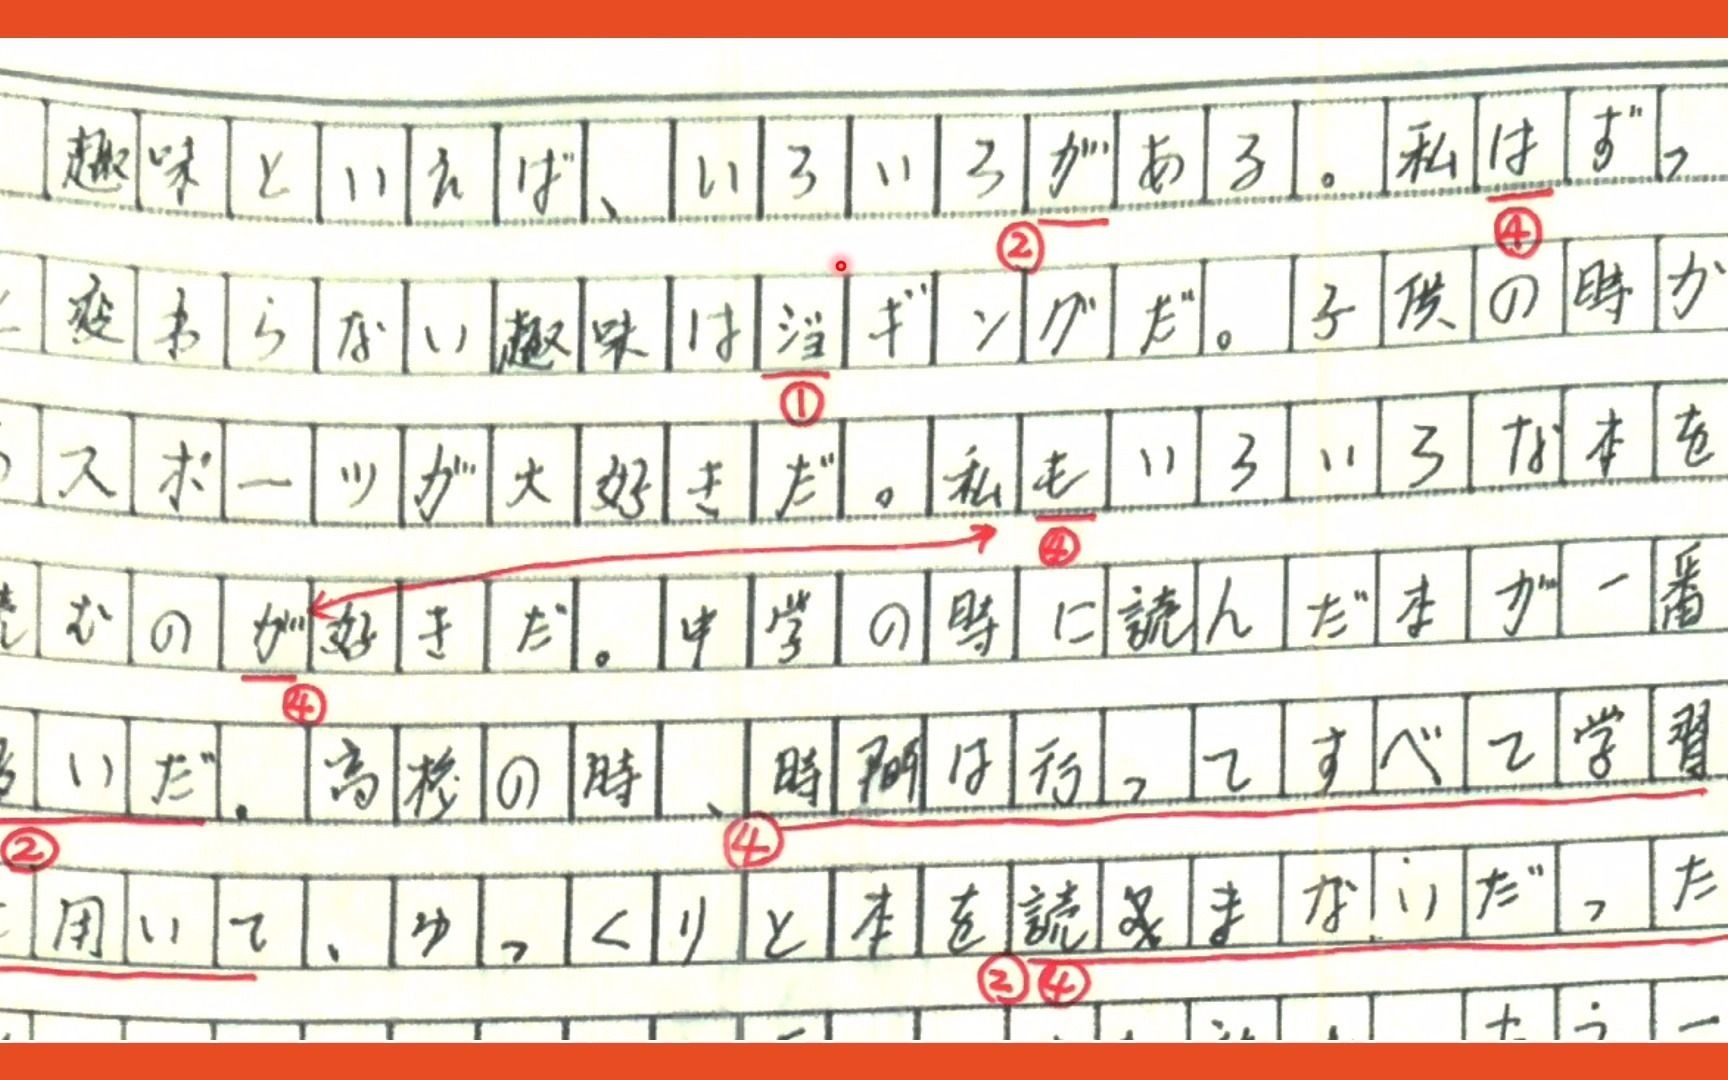 趣味といえば、いろいろがある。私はずっ
②
④
と変わらない趣味はジョギングだ。子供の時か
①
らスポーツが大好きだ。私もいろいろな本を
④
読むのが好きだ。中学の時に読んだ本が一番
④
いだ。高校の時、時間は行ってすべて学習
②
④
に用いて、ゆっくりと本を読まないだった
② ④